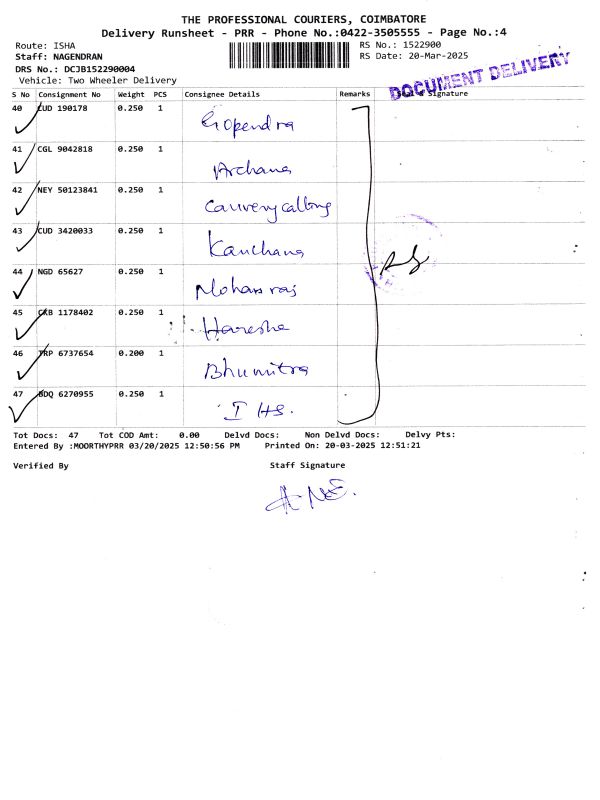 THE PROFESSIONAL COURIERS, COIMBATORE
Delivery Runsheet - PRR - Phone No.:0422-3505555 - Page No.:4
Route: ISHA RS No.: 1522900
Staff: NAGENDRAN RS Date: 20-Mar-2025
DRS No.: DCJB152290004
Vehicle: Two Wheeler Delivery
DOCUMENT DELIVERY
S No Consignment No Weight PCS Consignee Details Remarks Seal & Signature
40 CUD 190178 0.250 1 Gopendra
41 CGL 9042818 0.250 1 Archana
42 NEY 50123841 0.250 1 Cauvery calling
43 CUD 3420033 0.250 1 Kanchana
44 NGD 65627 0.250 1 Mohan raj
45 CKB 1178402 0.250 1 Haresha
46 TRP 6737654 0.200 1 Bhumitra
47 BDQ 6270955 0.250 1 I HS.
Tot Docs: 47 Tot COD Amt: 0.00 Delvd Docs: Non Delvd Docs: Delvy Pts:
Entered By :MOORTHYPRR 03/20/2025 12:50:56 PM Printed On: 20-03-2025 12:51:21
Verified By Staff Signature